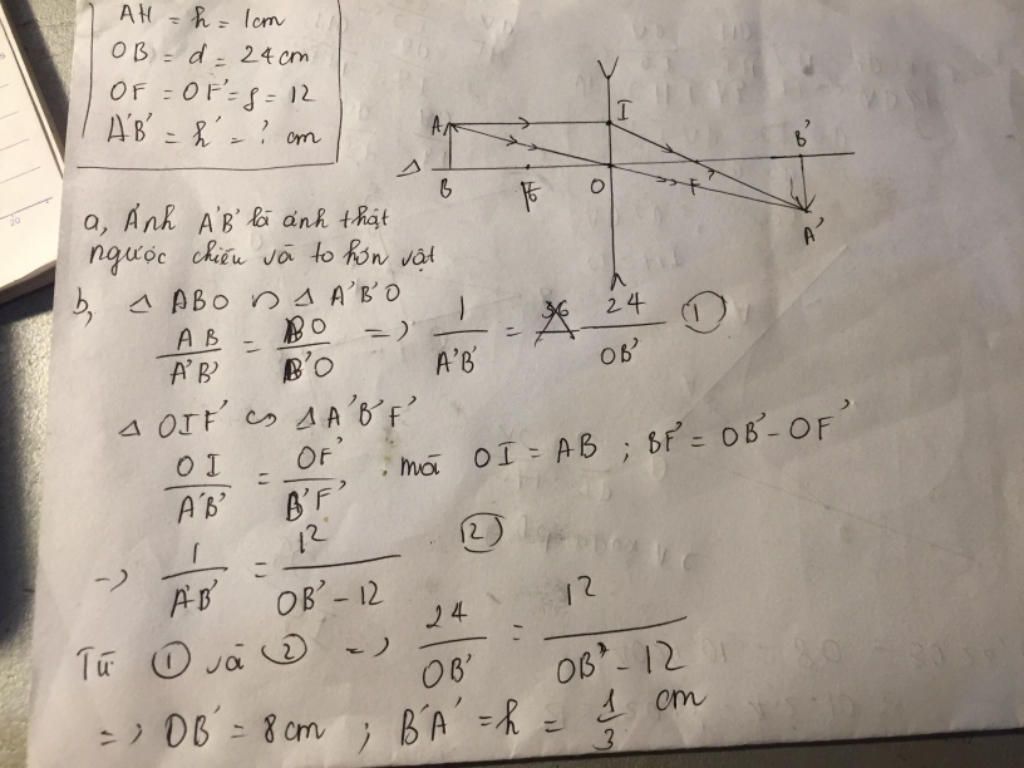 AH = h = 1cm
OB = d = 24cm
OF = OF' = f = 12
A'B' = h' = ? cm
A
I
B'
Δ
B
F
O
F
A'
a, Ảnh A'B' là ảnh thật
ngược chiều và to hơn vật
b, Δ ABO ∽ Δ A'B'O
AB/A'B' = BO/B'O => 1/A'B' = 24/OB' ①
Δ OIF' ∽ Δ A'B'F'
OI/A'B' = OF'/B'F' . mà OI = AB ; BF' = OB' - OF'
-> 1/A'B' = 12/OB' - 12 ②
Từ ① và ② => 24/OB' = 12/OB' - 12
=> OB' = 8cm ; B'A' = h = 1/3 cm